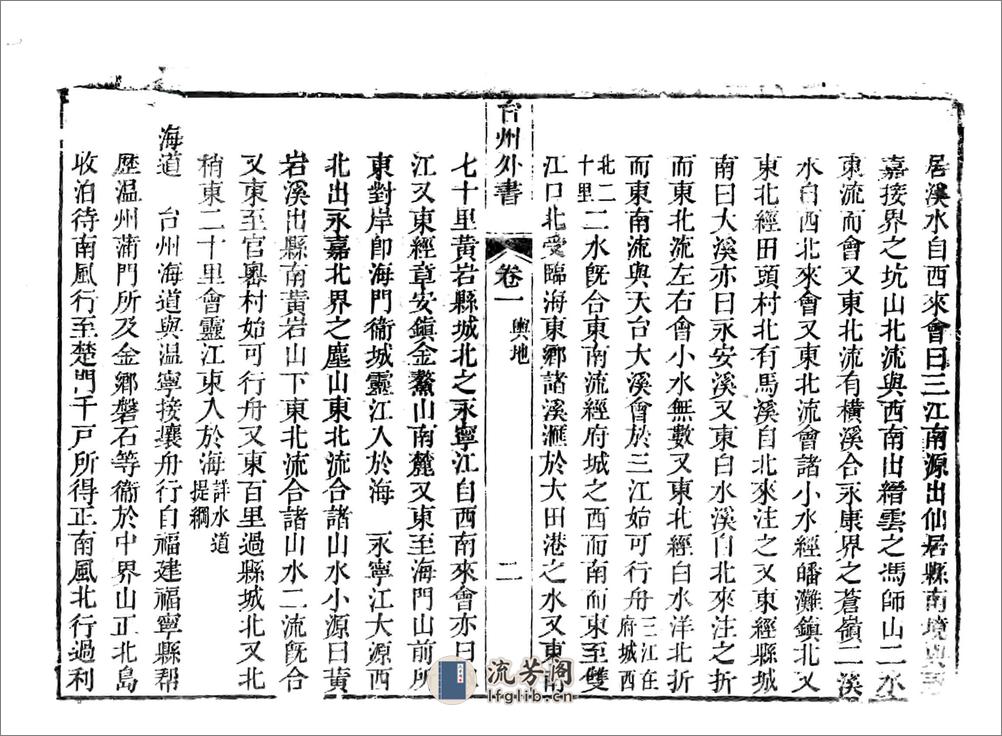 居溪水自西來會曰三江南源出仙居縣南境與永
嘉接界之坑山北流與西南出縉雲之馮師山二水
東流而會又東北流有橫溪合永康界之蒼嶺二溪
水自西北來會又東北流會諸小水經皤灘鎮北又
東北經田頭村北有馬溪自北來注之又東經縣城
南曰大溪亦曰永安溪又東白水溪自北來注之折
而東北流左右會小水無數又東北經白水洋北折
而東南流與天台大溪會於三江始可行舟三江在府城西
北二十里二水既合東南流經府城之西而南而東至雙
江口北受臨海東鄉諸溪滙於大田港之水又東南
台州外書 卷一 輿地 二
七十里黃岩縣城北之永寧江自西南來會亦曰
江又東經章安鎮金鰲山南麓又東至海門山前所
東對岸卽海門衞城靈江入於海 永寧江大源西
北出永嘉北界之塵山東北流合諸山水小源曰黃
岩溪出縣南黃岩山下東北流合諸山水二流既合
又東至官嶴村始可行舟又東百里過縣城北又北
稍東二十里會靈江東入於海詳水道提綱
海道 台州海道與温寧接壤舟行自福建福寧縣幇
歷温州蒲門所及金鄉磐石等衞於中界山正北島
收泊待南風行至楚門千戸所得正南風北行過利
流芳阁
lfglib.cn